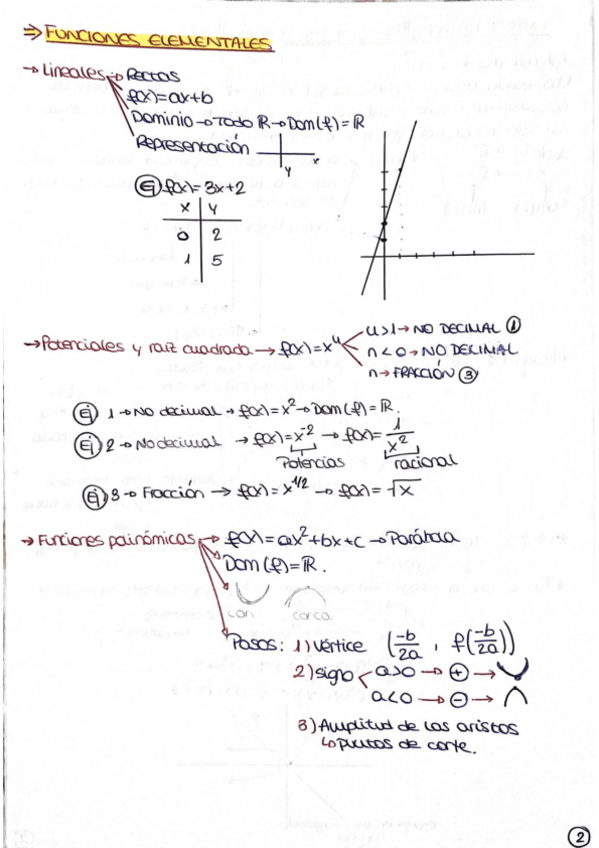 ⇒ FUNCIONES ELEMENTALES
→ Lineales → Rectas
f(x)=ax+b
Dominio → Todo ℝ → Dom(f)=ℝ
Representación
x
y
Ej f(x)=3x+2
x y
0 2
1 5
→ Potenciales y raíz cuadrada → f(x)=xⁿ
n>1 → NO DECIMAL ①
n<0 → NO DECIMAL
n → FRACCIÓN ③
Ej 1 → No decimal → f(x)=x² → Dom(f)=ℝ.
Ej 2 → No decimal → f(x)=x⁻² → f(x)=1/x²
Potencias racional
Ej 3 → Fracción → f(x)=x^1/2 → f(x)=√x
→ Funciones polinómicas → f(x)=ax²+bx+c → Parábola
Dom(f)=ℝ.
con
Pasos: 1) Vértice (-b/2a , f(-b/2a))
2) signo a>0 → + →
a<0 → − →
3) Amplitud de las aristas
↳ puntos de corte.
2